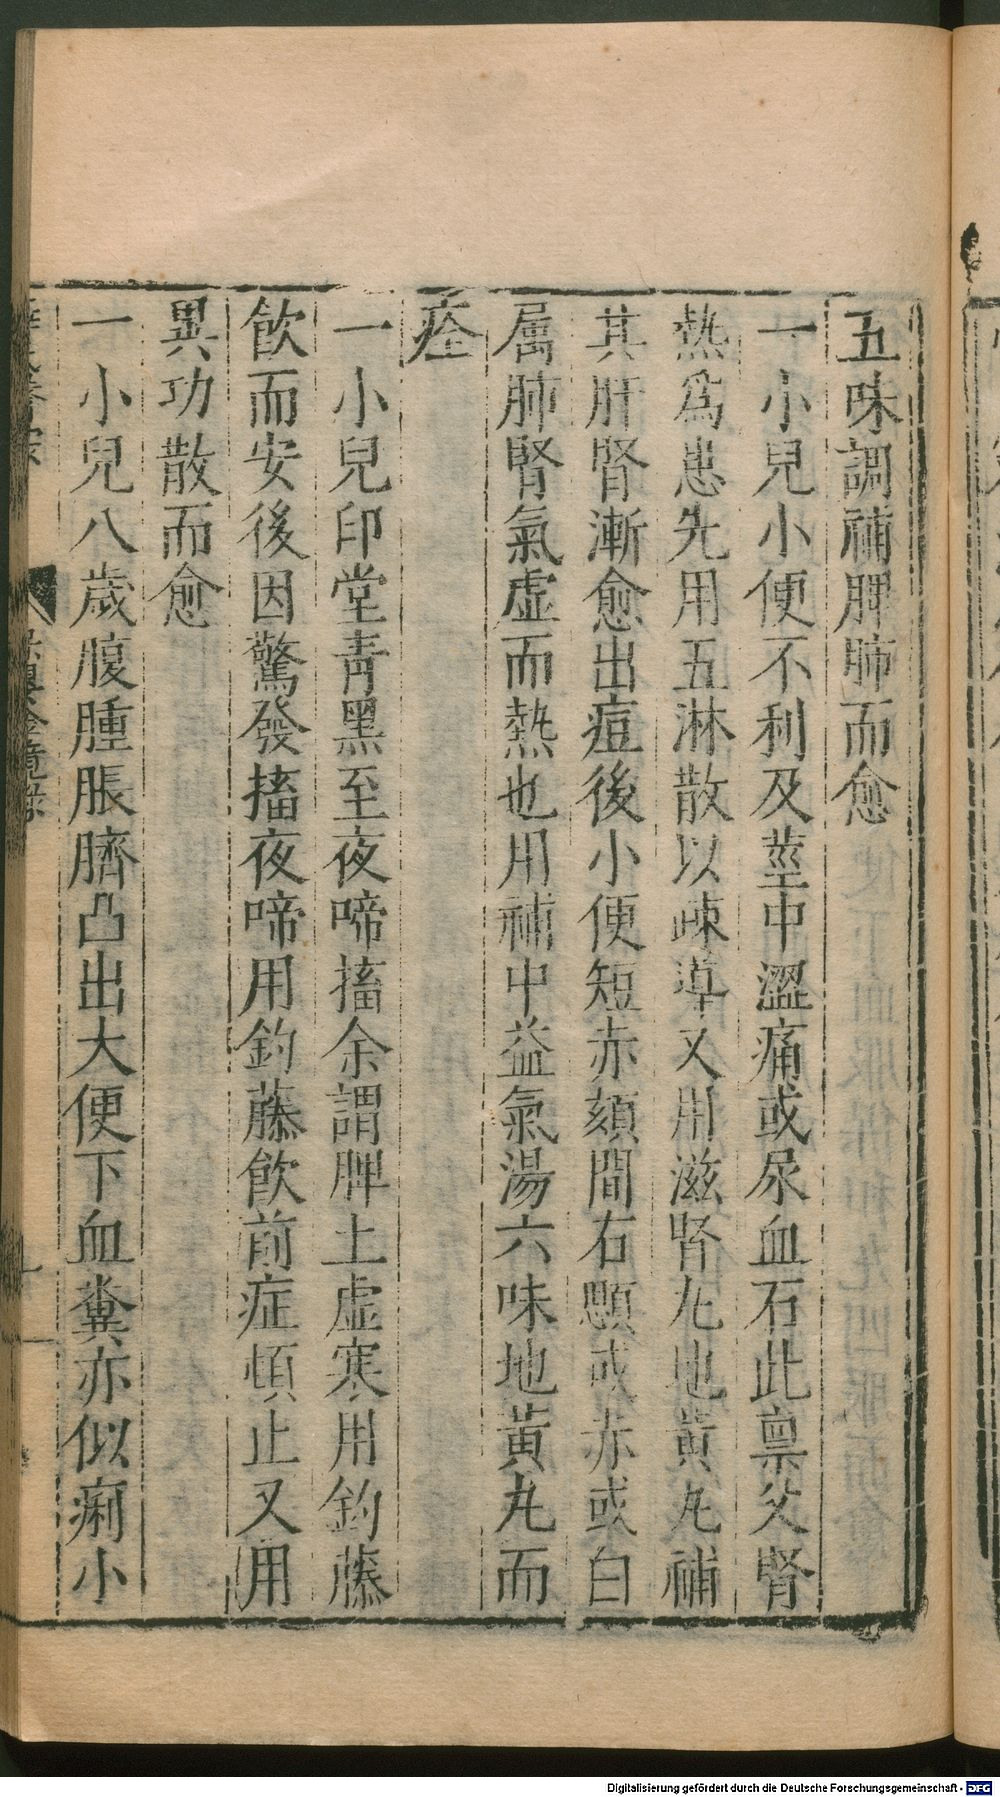 五味調補脾肺而愈
一小兒小便不利及莖中澀痛或尿血石此禀父腎
熱為患先用五淋散以疎導又用滋腎丸地黃丸補
其肝腎漸愈出痘後小便短赤頦間右顋或赤或白
属肺腎氣虛而熱也用補中益氣湯六味地黃丸而
痊
一小兒印堂青黑至夜啼搐余謂脾土虛寒用鈎藤
飲而安後因驚發搐夜啼用鈎藤飲前症頓止又用
異功散而愈
一小兒八歲腹腫脹臍凸出大便下血糞亦似痢小
Digitalisierung gefördert durch die Deutsche Forschungsgemeinschaft - DFG